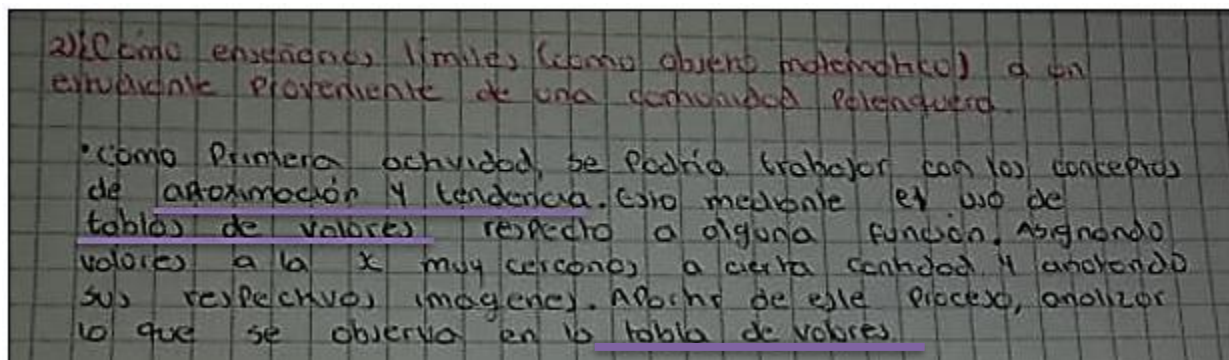 2)¿Cómo enseñarías límites (como objeto matemático) a un
estudiante proveniente de una comunidad Palenquera.
•Como Primera actividad, se Podría trabajar con los conceptos
de aproximación y tendencia. Esto mediante el uso de
tablas de valores respecto a alguna función. Asignando
valores a la x muy cercanos a cierta cantidad y anotando
sus respectivas imagenes. Apartir de este proceso, analizar
lo que se observa en la tabla de valores